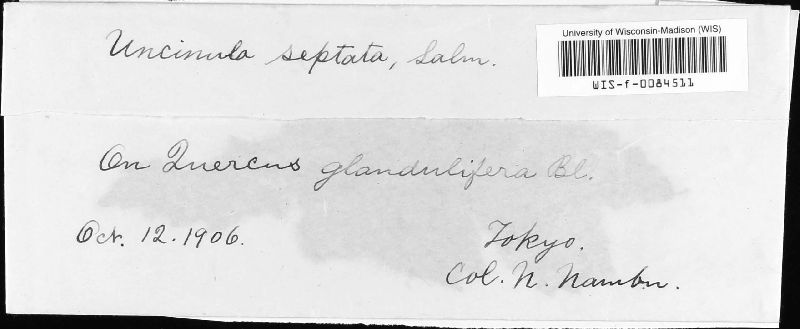 Uncinula septata, Salm.
University of Wisconsin-Madison (WIS)
WIS-f-0084511
On Quercus glandulifera Bl.
Oct. 12. 1906.
Tokyo.
Col. N. Nambu.